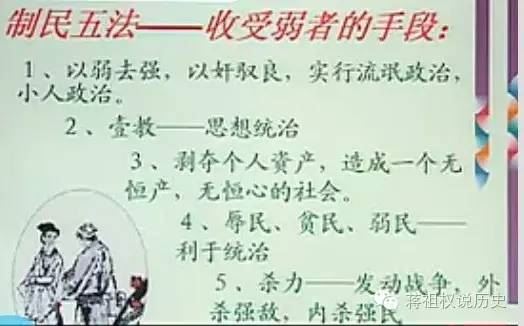 制民五法——收受弱者的手段：
1、以弱去强，以奸驭良，实行流氓政治，
小人政治。
2、壹教——思想统治
3、剥夺个人資产，造成一个无
恒产，无恒心的社会。
4、辱民、貧民、弱民——
利于统治
5、杀力——发动战争，外
杀强敌，内杀强民
蒋祖权说历史